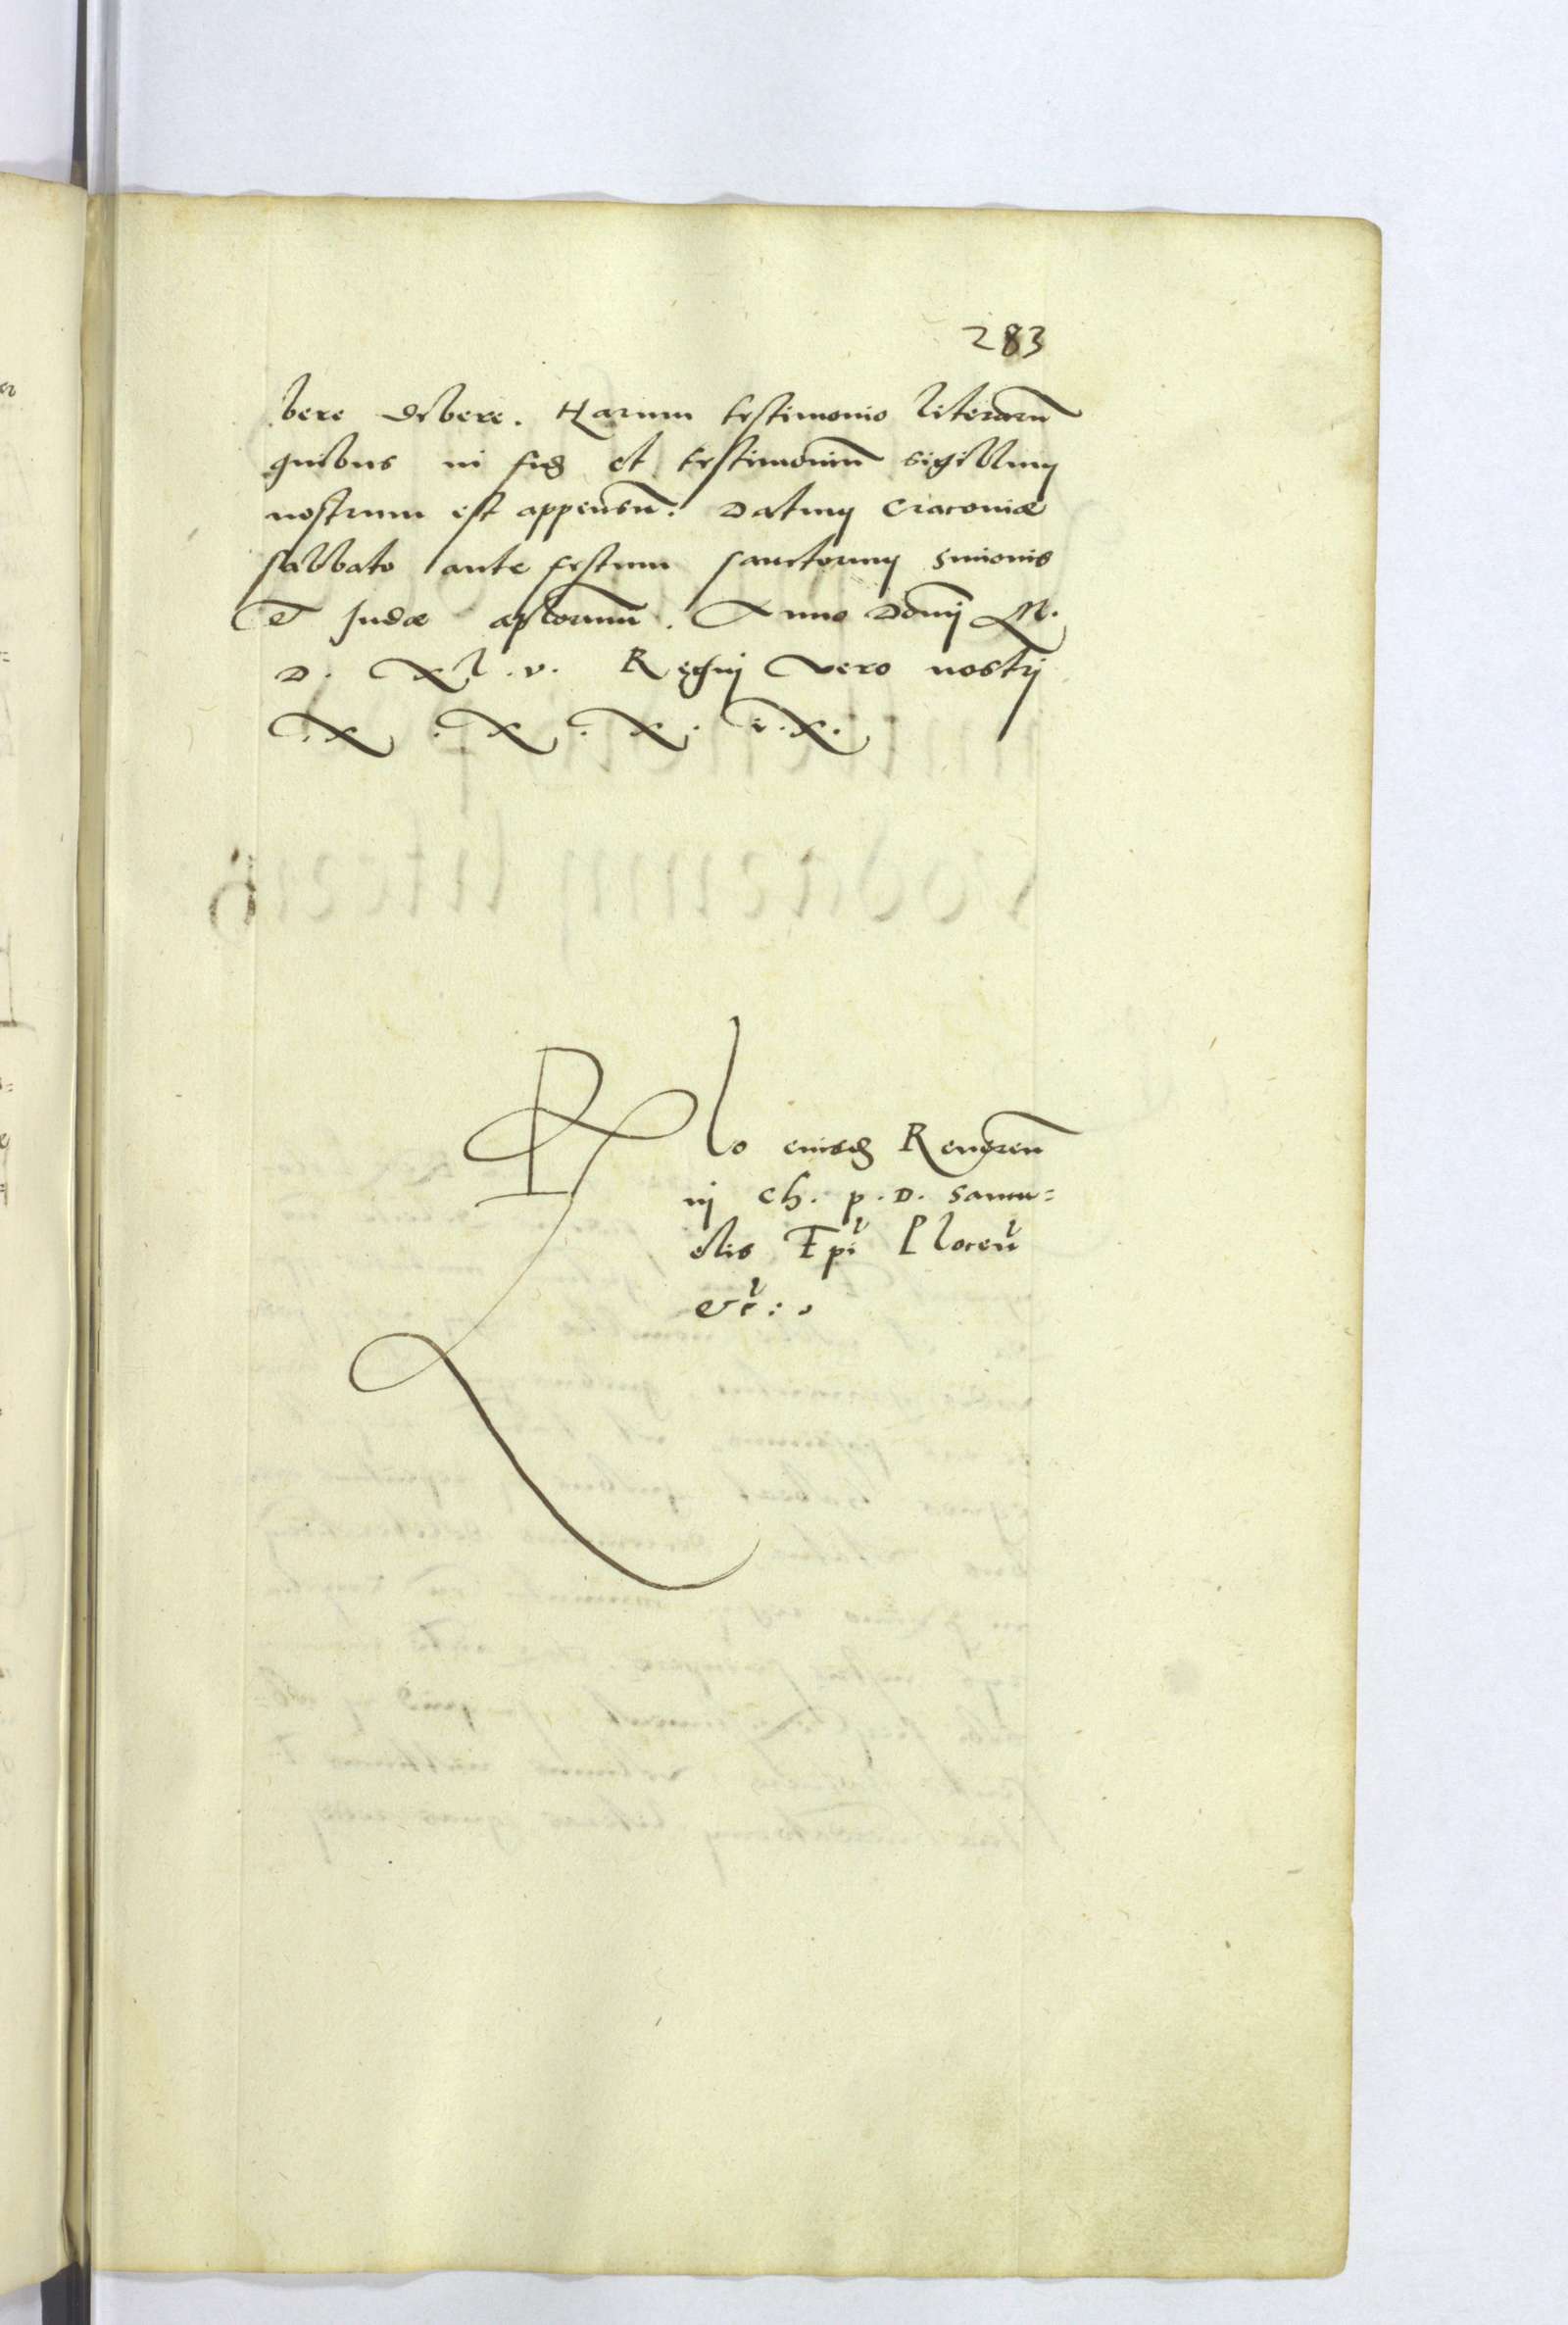 283
bere debere. Harum testimonio literarũ
quibus in fidẽ et testimoniũ sigillum
nostrum est appensũ. Datum Cracoviæ
sabbato ante festum sanctorum Simonis
et Judæ aplorum. Anno Domj M.
D. Xl.v. Regnj vero nostrj
X. X. X. i.X.
Rlo eiusdẽ Reveren
ij Ch. p. D. Samu=
elis Epi Plocen
etc:.